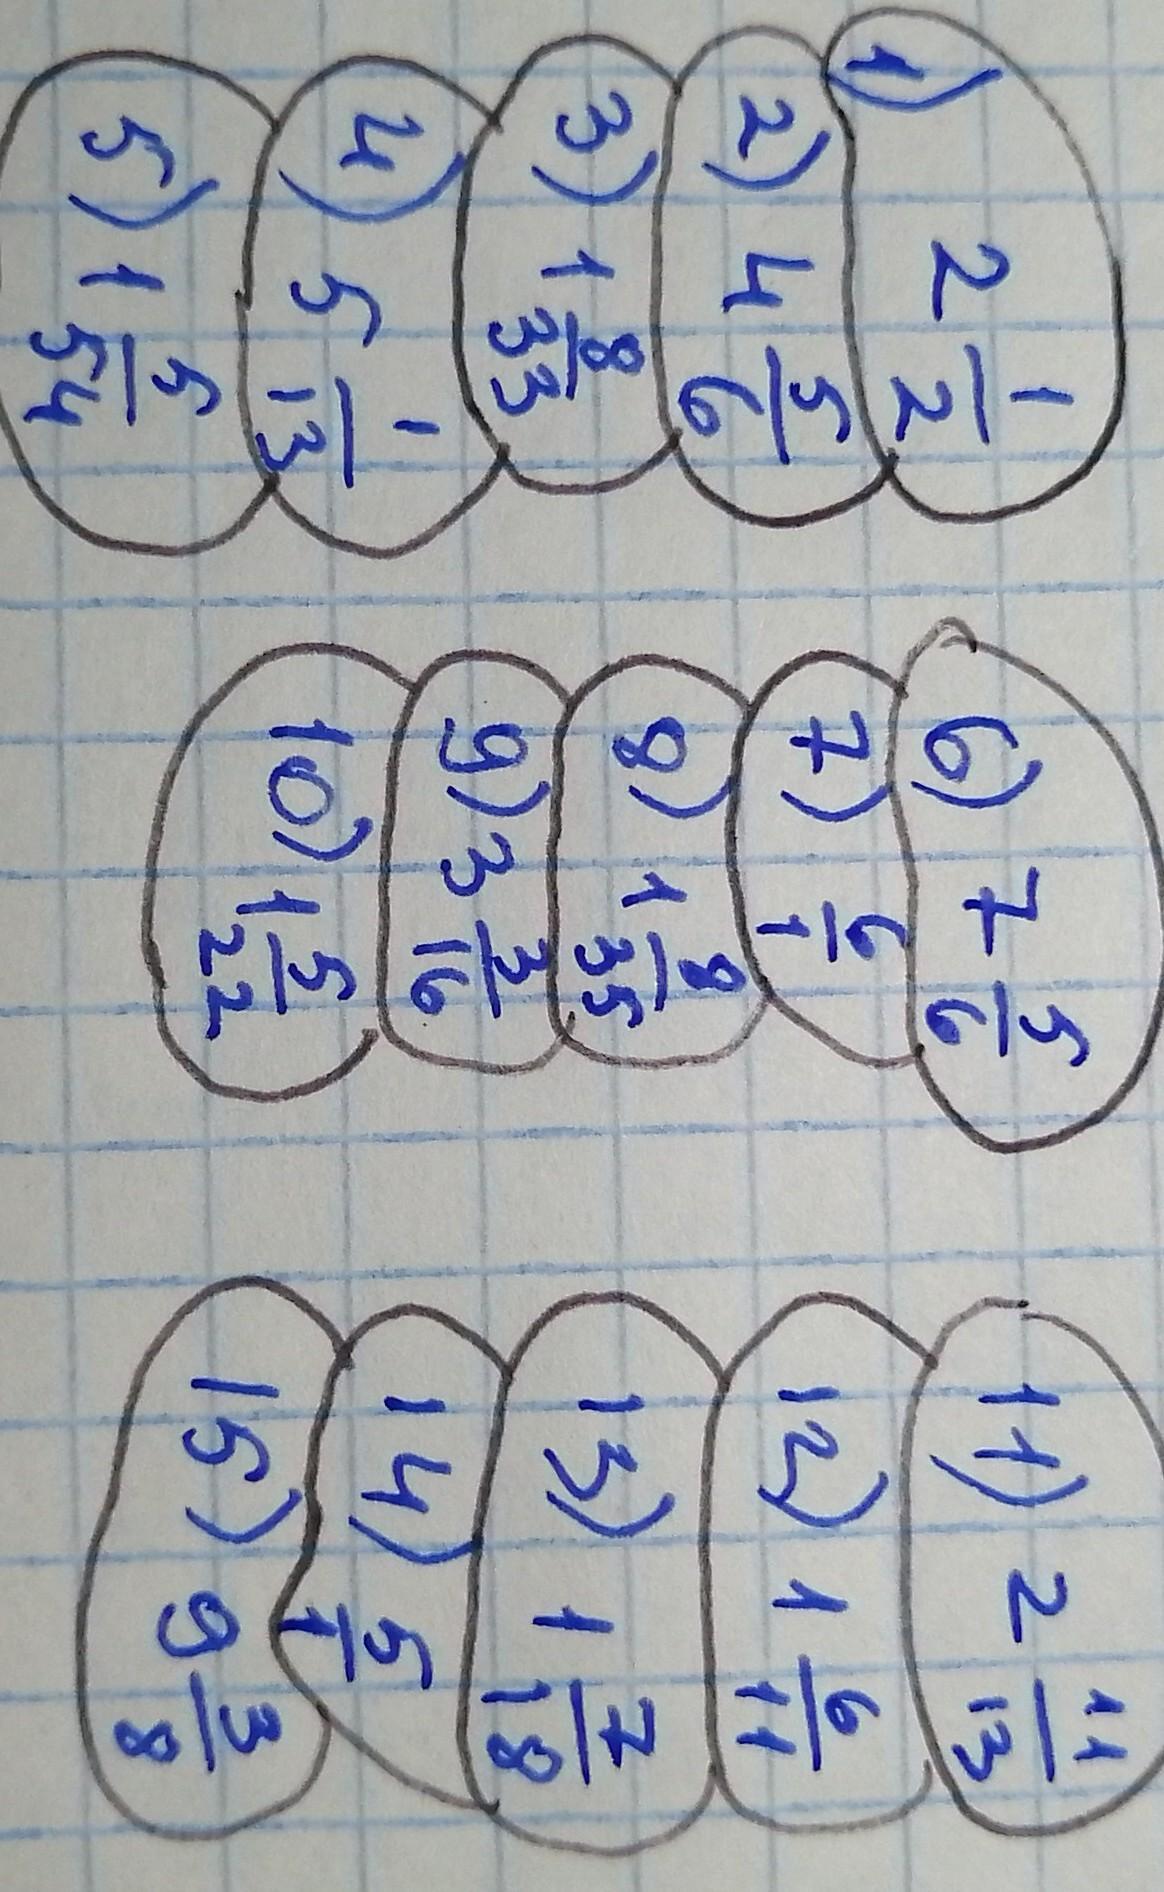 1) 2 1/2
2) 4 5/6
3) 1 8/33
4) 5 1/13
5) 1 5/54
6) 7 5/6
7) 6/1
8) 1 8/35
9) 3 3/16
10) 1 5/22
11) 2 11/13
12) 1 6/11
13) 1 7/18
14) 5/1
15) 9 3/8